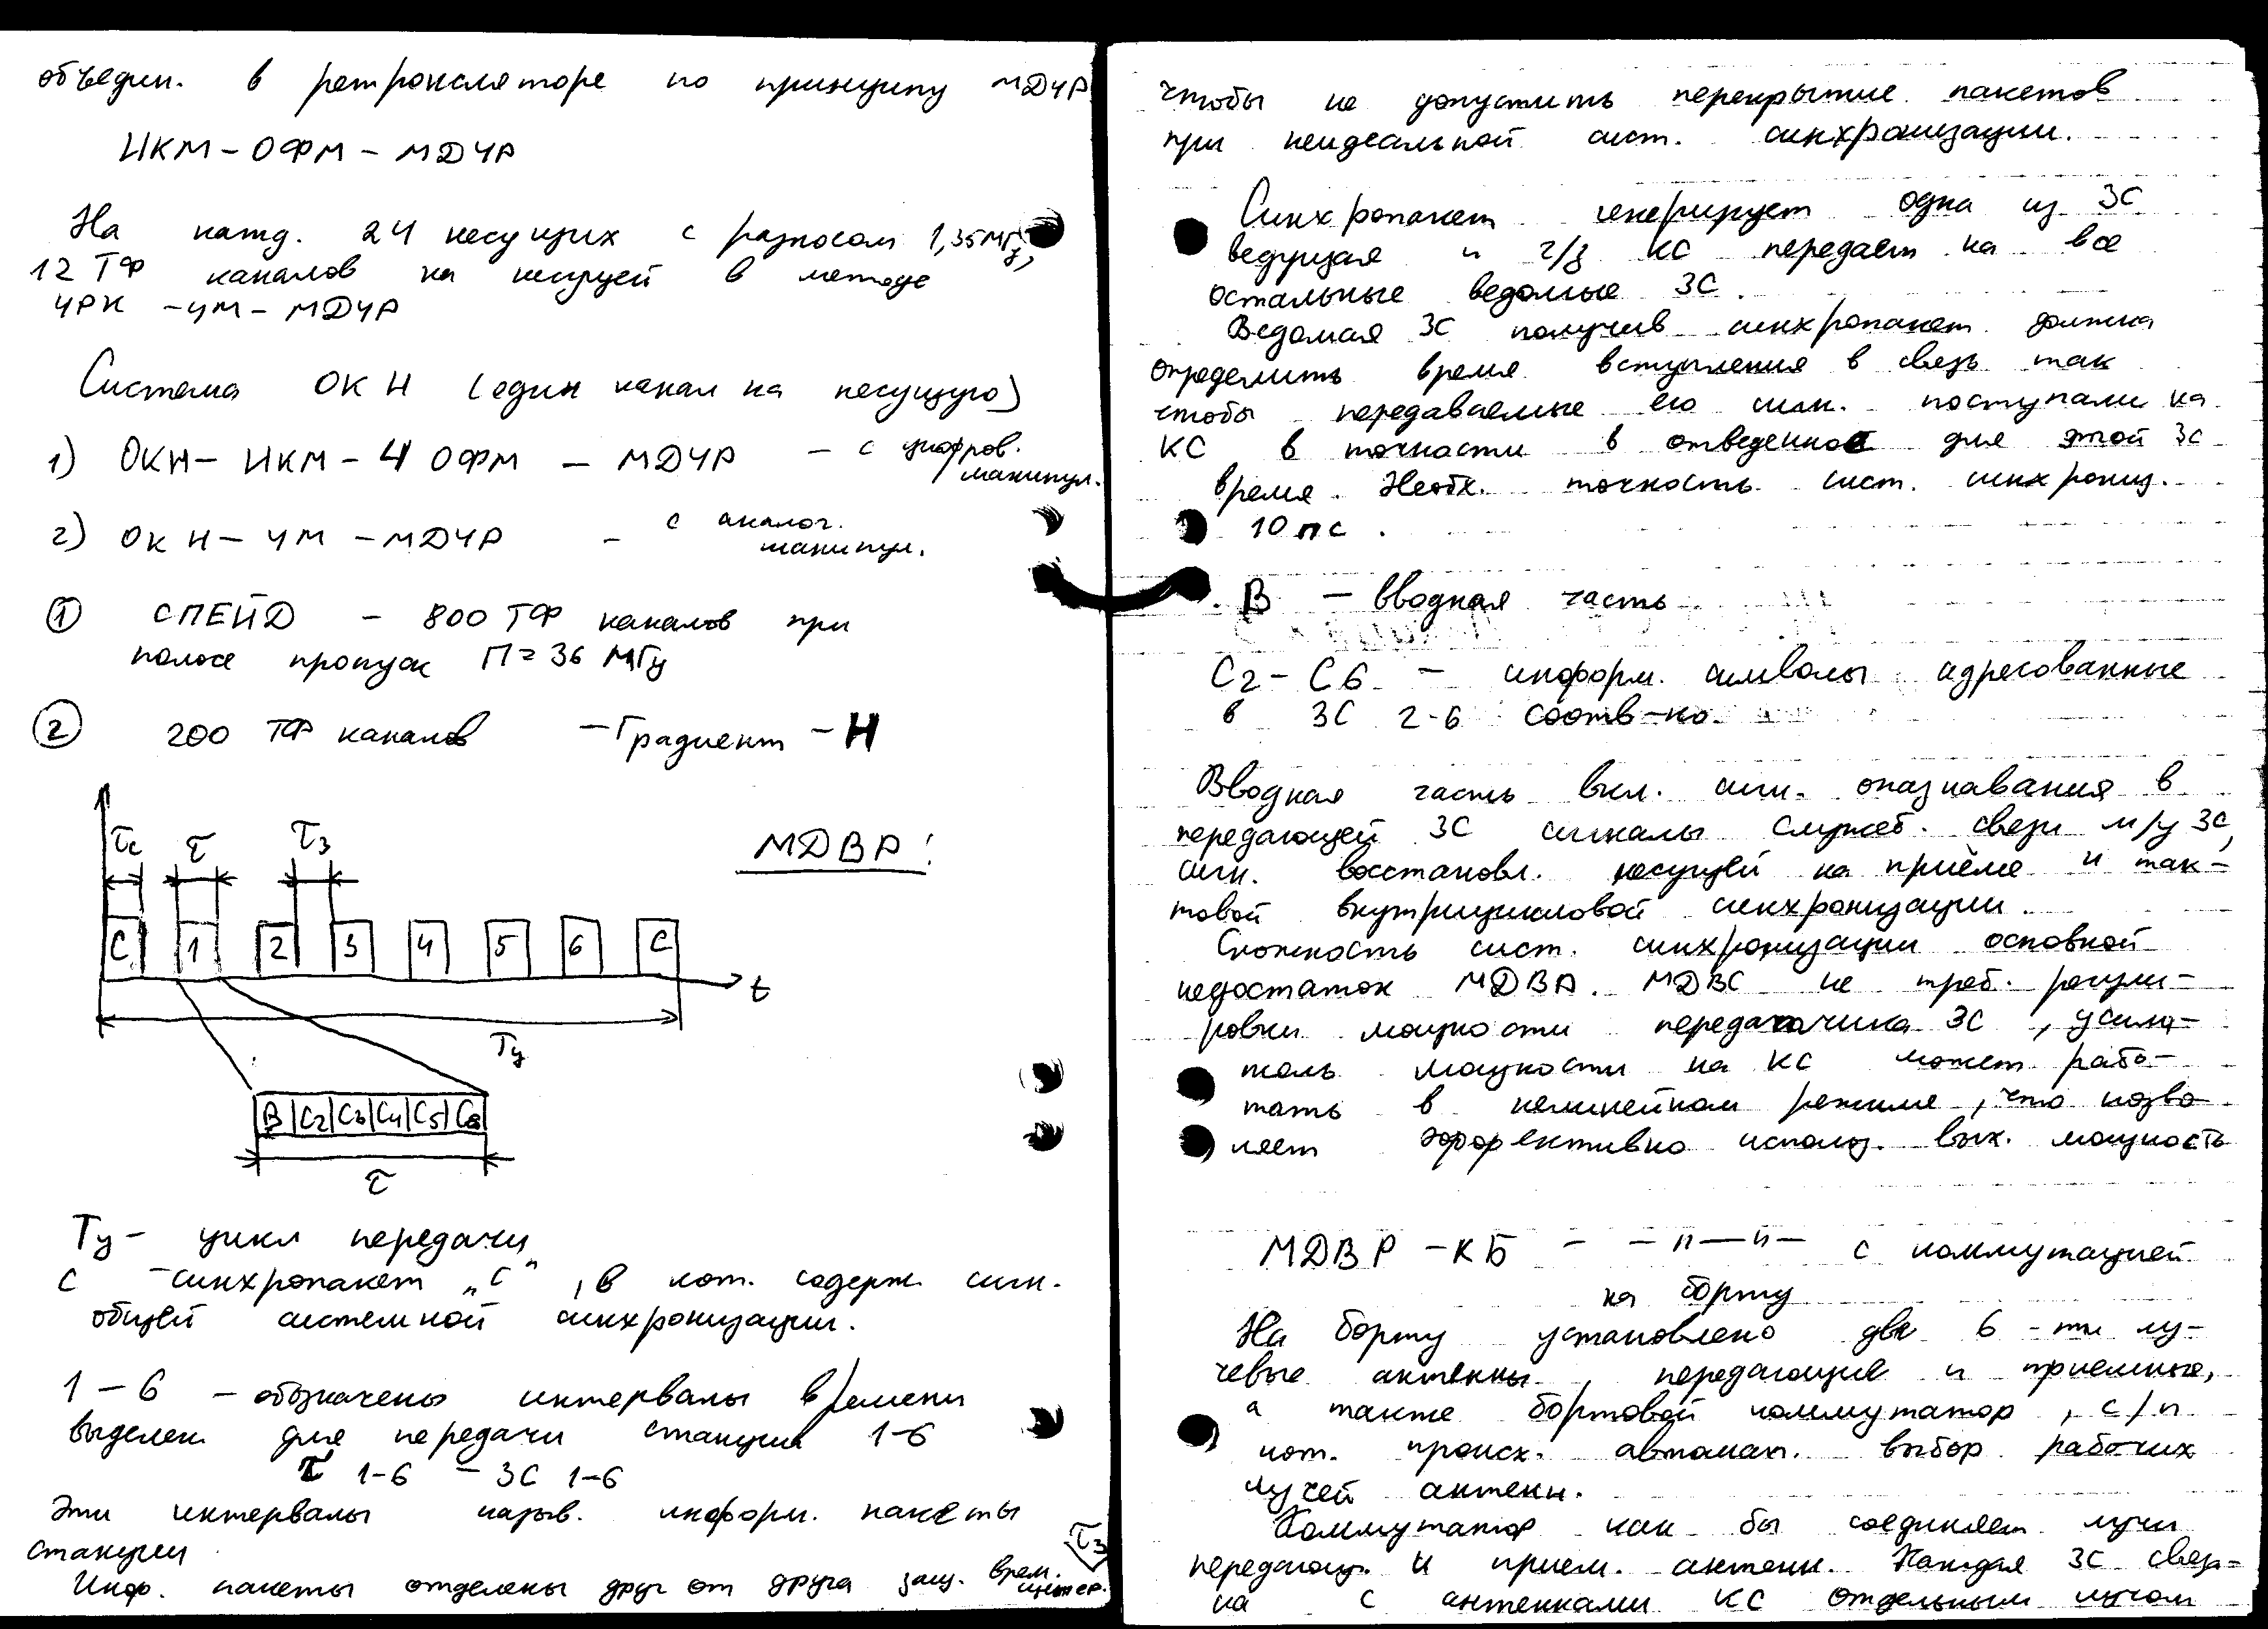 объедин. в ретрансляторе по принципу МДЧР
ИКМ-ОФМ-МДЧР
На кажд. 24 несущих с разносом 1,35 МГц,
12 ТФ каналов на несущей в методе
ЧРК -ЧМ- МДЧР
Система ОКН (один канал на несущую)
1) ОКН- ИКМ - 4 ОФМ - МДЧР - с цифров.
манипул.
2) ОКН- ЧМ -МДЧР - с аналог.
манипул.
① СПЕЙД - 800 ТФ каналов при
полосе пропуск П=36 МГц
② 200 ТФ каналов -Градиент -Н
МДВР!
τс τ τз
С 1 2 3 4 5 6 С
t
Тц
В|С2|С3|С4|С5|С6
τ
Тц- цикл передачи
С -синхропакет „С" , в кот. содерж. сигн.
общей системной синхронизации.
1-6 - обозначены интервалы времени
выделен для передачи станций 1-6
τ 1-6 - ЗС 1-6
Эти интервалы назыв. информ. пакеты
станции
Инф. пакеты отделены друг от друга защ. врем.
интер.
τз
чтобы не допустить перекрытие пакетов
при неидеальной сист. синхронизации.
Синхропакет генерирует одна из ЗС
ведущая и ч/з КС передает на все
остальные ведомые ЗС.
Ведомая ЗС получив синхропакет должна
определить время вступления в связь так
чтобы передаваемые ею сигн. поступали на
КС в точности в отведенное для этой ЗС
время. Необх. точность сист. синхрониз.
10 пс.
В - вводная часть
С2- С6 - информ. символы адресованные
в ЗС 2-6 соотв-но.
Вводная часть вкл. сигн. опознавания в
передающей ЗС сигналы служеб. связи м/у ЗС,
сигн. восстановл. несущей на приёме и так-
товой внутрицикловой синхронизации.
Сложность сист. синхронизации основной
недостаток МДВР. МДВС не треб. регули-
ровки мощности передатчика ЗС, усили-
тель мощности на КС может рабо-
тать в нелинейном режиме, что позво
ляет эффективно использ. вых. мощность
МДВР -КБ - -"-"- с коммутацией
на борту
На борту установлено две 6-ти лу-
чевые антенны, передающие и приемные,
а также бортовой коммутатор, с/п
кот. происх. автомат. выбор рабочих
лучей антенн.
Коммутатор как бы соединяет лучи
передающ. и прием. антенн. Каждая ЗС связа-
на с антеннами КС отдельным лучом